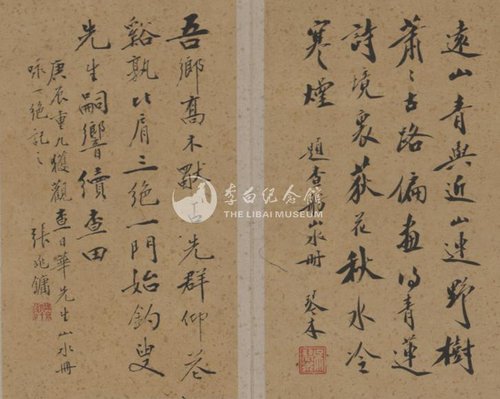 遠山青與近山連野樹
蕭〻古路偏畫得青蓮
詩境裏荻花秋水冷
寒煙
題查山水冊
吾鄉喬木群仰
谿孰比肩三絕一門始釣叟
先生嗣響續查田
庚辰重九獲觀查日華先生山水冊
咏一絕記之
張兆鏞
李白纪念館
THE LIBAI MUSEUM